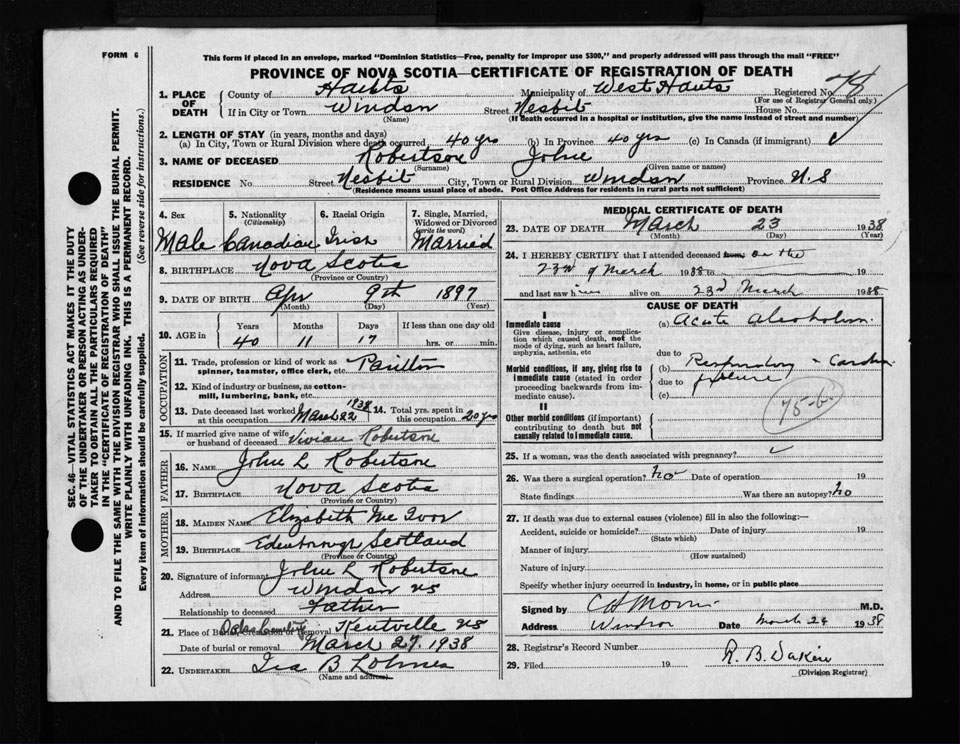 FORM 6
This form if placed in an envelope, marked "Dominion Statistics—Free, penalty for improper use $300," and properly addressed will pass through the mail "FREE"
PROVINCE OF NOVA SCOTIA—CERTIFICATE OF REGISTRATION OF DEATH
SEC. 46—VITAL STATISTICS ACT MAKES IT THE DUTY
OF THE UNDERTAKER OR PERSON ACTING AS UNDER-
TAKER TO OBTAIN ALL THE PARTICULARS REQUIRED
IN THE "CERTIFICATE OF REGISTRATION OF DEATH"
AND TO FILE THE SAME WITH THE DIVISION REGISTRAR WHO SHALL ISSUE THE BURIAL PERMIT.
WRITE PLAINLY WITH UNFADING INK. THIS IS A PERMANENT RECORD.
Every item of information should be carefully supplied. (See reverse side for instructions.)
1. PLACE OF DEATH County of Hants Municipality of West Hants Registered No.
(For use of Registrar General only)
If in City or Town Windsor Street Nesbit House No.
(Name) (If death occurred in a hospital or institution, give the name instead of street and number)
2. LENGTH OF STAY (in years, months and days)
(a) In City, Town or Rural Division where death occurred 40 yrs (b) In Province 40 yrs (c) In Canada (if immigrant)
3. NAME OF DECEASED Robertson John
(Surname) (Given name or names)
RESIDENCE No. Street Nesbit City, Town or Rural Division Windsor Province N.S
(Residence means usual place of abode. Post Office Address for residents in rural parts not sufficient)
4. Sex 5. Nationality (Citizenship) 6. Racial Origin 7. Single, Married, Widowed or Divorced (write the word)
Male Canadian Irish Married
8. BIRTHPLACE Nova Scotia
(Province or Country)
9. DATE OF BIRTH Apr 9th 1897
(Month) (Day) (Year)
10. AGE in Years Months Days If less than one day old
40 11 17 hrs. or min.
OCCUPATION
11. Trade, profession or kind of work as spinner, teamster, office clerk, etc.
12. Kind of industry or business, as cotton-mill, lumbering, bank, etc.
13. Date deceased last worked at this occupation March 22 1938 14. Total yrs. spent in this occupation 20 yrs
15. If married give name of wife or husband of deceased Vivian Robertson
FATHER
16. NAME John L Robertson
17. BIRTHPLACE Nova Scotia
(Province or Country)
MOTHER
18. MAIDEN NAME Elizabeth
19. BIRTHPLACE Edenborough Scotland
(Province or Country)
20. Signature of informant John L Robertson
Address Windsor NS
Relationship to deceased Father
21. Place of Burial, Cremation or Removal Kentville NS
Date of burial or removal March 27, 1938
22. UNDERTAKER Ira B Lohnes
(Name and address)
MEDICAL CERTIFICATE OF DEATH
23. DATE OF DEATH March 23 1938
(Month) (Day) (Year)
24. I HEREBY CERTIFY that I attended deceased from on the
23rd of March 1938 to 19
and last saw him alive on 23rd March 1938
CAUSE OF DEATH
I
Immediate cause
Give disease, injury or complication which caused death, not the mode of dying, such as heart failure, asphyxia, asthenia, etc
(a) Acute Alcoholism
due to
Morbid conditions, if any, giving rise to immediate cause (stated in order proceeding backwards from immediate cause).
(b) Respiratory - Cardiac
due to failure
(c)
75-b
II
Other morbid conditions (if important) contributing to death but not causally related to immediate cause.
25. If a woman, was the death associated with pregnancy?
26. Was there a surgical operation? no Date of operation 19
State findings Was there an autopsy? no
27. If death was due to external causes (violence) fill in also the following:—
Accident, suicide or homicide? Date of injury 19
(State which)
Manner of injury
(How sustained)
Nature of injury
Specify whether injury occurred in industry, in home, or in public place
Signed by M.D.
Address Windsor Date March 24 1938
28. Registrar's Record Number
29. Filed 19 R. B. Dakin
(Division Registrar)